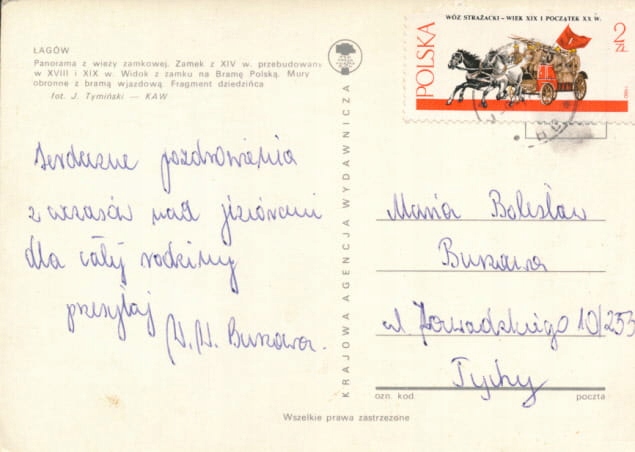 ŁAGÓW
Panorama z wieży zamkowej. Zamek z XIV w. przebudowany
w XVIII i XIX w. Widok z zamku na Bramę Polską. Mury
obronne z bramą wjazdową. Fragment dziedzińca
fot. J. Tymiński — KAW
Serdeczne pozdrowienia
z wczasów nad jeziorami
dla całej rodziny
przesyłaj
W. W. Burzawa.
KRAJOWA AGENCJA WYDAWNICZA
WÓZ STRAŻACKI – WIEK XIX I POCZĄTEK XX W.
POLSKA
2 ZŁ
Maria Bolesław
Burzawa
ul. Zawadzkiego 10/255
Tychy
ozn. kod.
poczta
Wszelkie prawa zastrzeżone